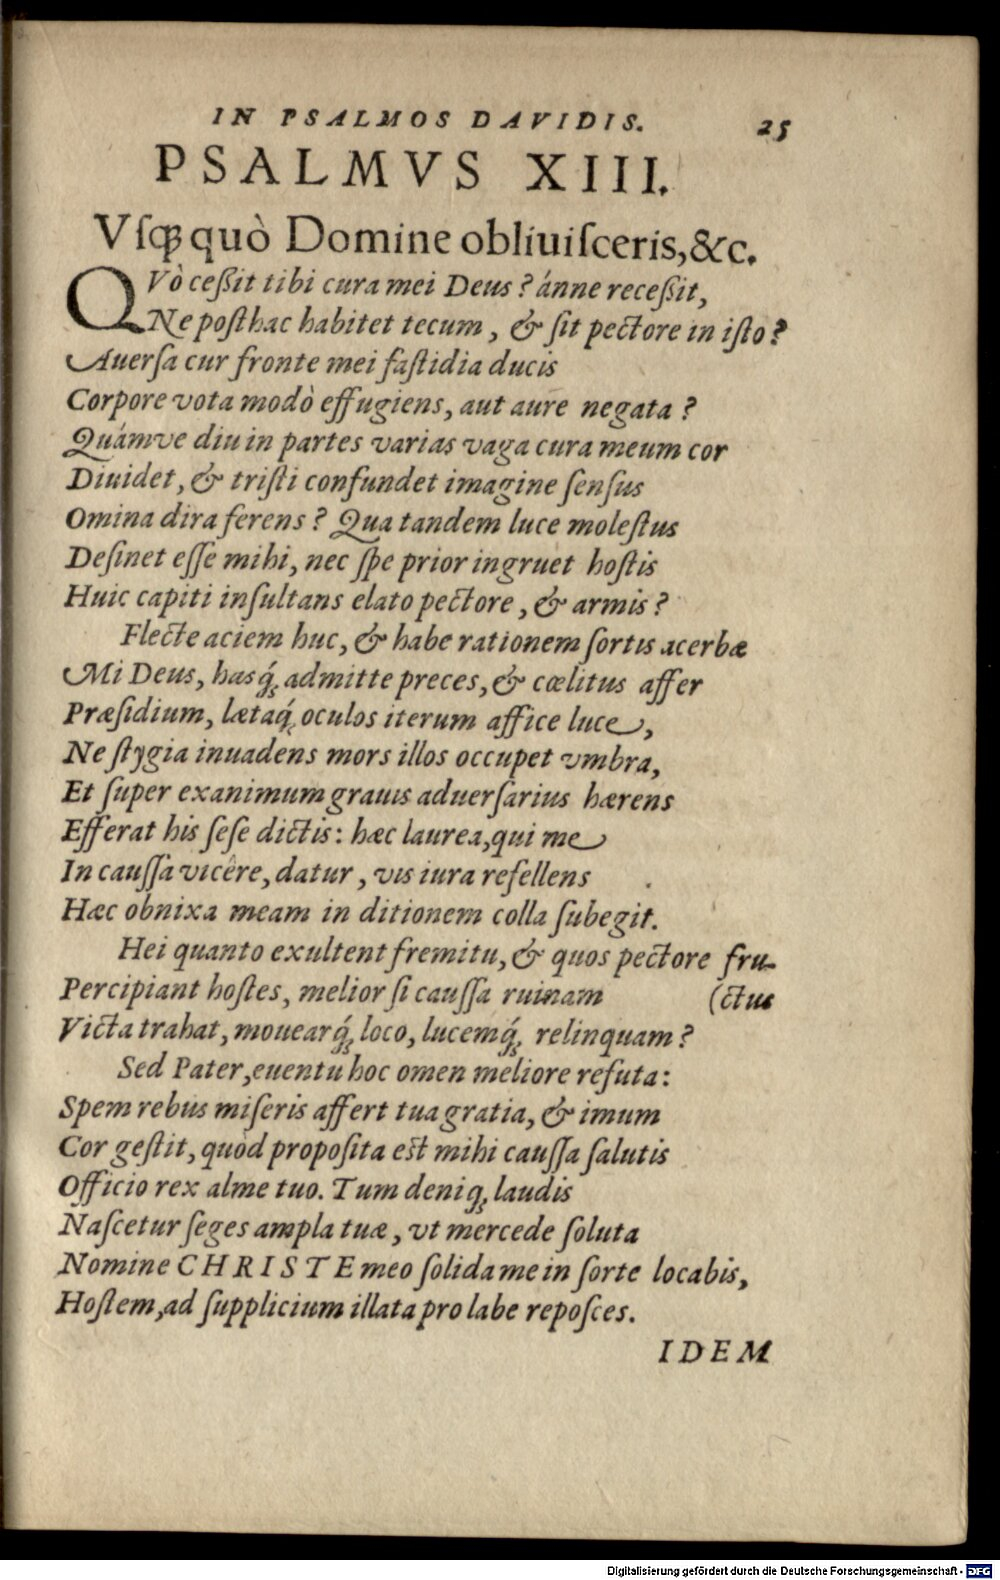 IN PSALMOS DAVIDIS. 25
PSALMVS XIII.
Vſqꝫ quò Domine obliuiſceris, &c.
QVò ceßit tibi cura mei Deus? ánne receßit,
Ne poſthac habitet tecum, & ſit pectore in iſto?
Auerſa cur fronte mei faſtidia ducis
Corpore vota modò effugiens, aut aure negata?
Quámve diu in partes varias vaga cura meum cor
Diuidet, & triſti confundet imagine ſenſus
Omina dira ferens? Qua tandem luce moleſtus
Deſinet eſſe mihi, nec ſpe prior ingruet hoſtis
Huic capiti inſultans elato pectore, & armis?
Flecte aciem huc, & habe rationem ſortis acerbæ
Mi Deus, hasq́ꝫ admitte preces, & cœlitus affer
Præſidium, lætaq́ꝫ oculos iterum affice luce,
Ne ſtygia inuadens mors illos occupet vmbra,
Et ſuper exanimum grauis aduerſarius hærens
Efferat his ſeſe dictis: hæc laurea, qui me
In cauſſa vicêre, datur, vis iura refellens
Hæc obnixa meam in ditionem colla ſubegit.
Hei quanto exultent fremitu, & quos pectore fru-
Percipiant hoſtes, melior ſi cauſſa ruinam (ctus
Victa trahat, mouearq́ꝫ loco, lucemq́ꝫ relinquam?
Sed Pater, euentu hoc omen meliore refuta:
Spem rebus miſeris affert tua gratia, & imum
Cor geſtit, quòd propoſita eſt mihi cauſſa ſalutis
Officio rex alme tuo. Tum deniqꝫ laudis
Naſcetur ſeges ampla tuæ, vt mercede ſoluta
Nomine CHRISTE meo ſolida me in ſorte locabis,
Hoſtem, ad ſupplicium illata pro labe repoſces.
IDEM
Digitalisierung gefördert durch die Deutsche Forschungsgemeinschaft - DFG